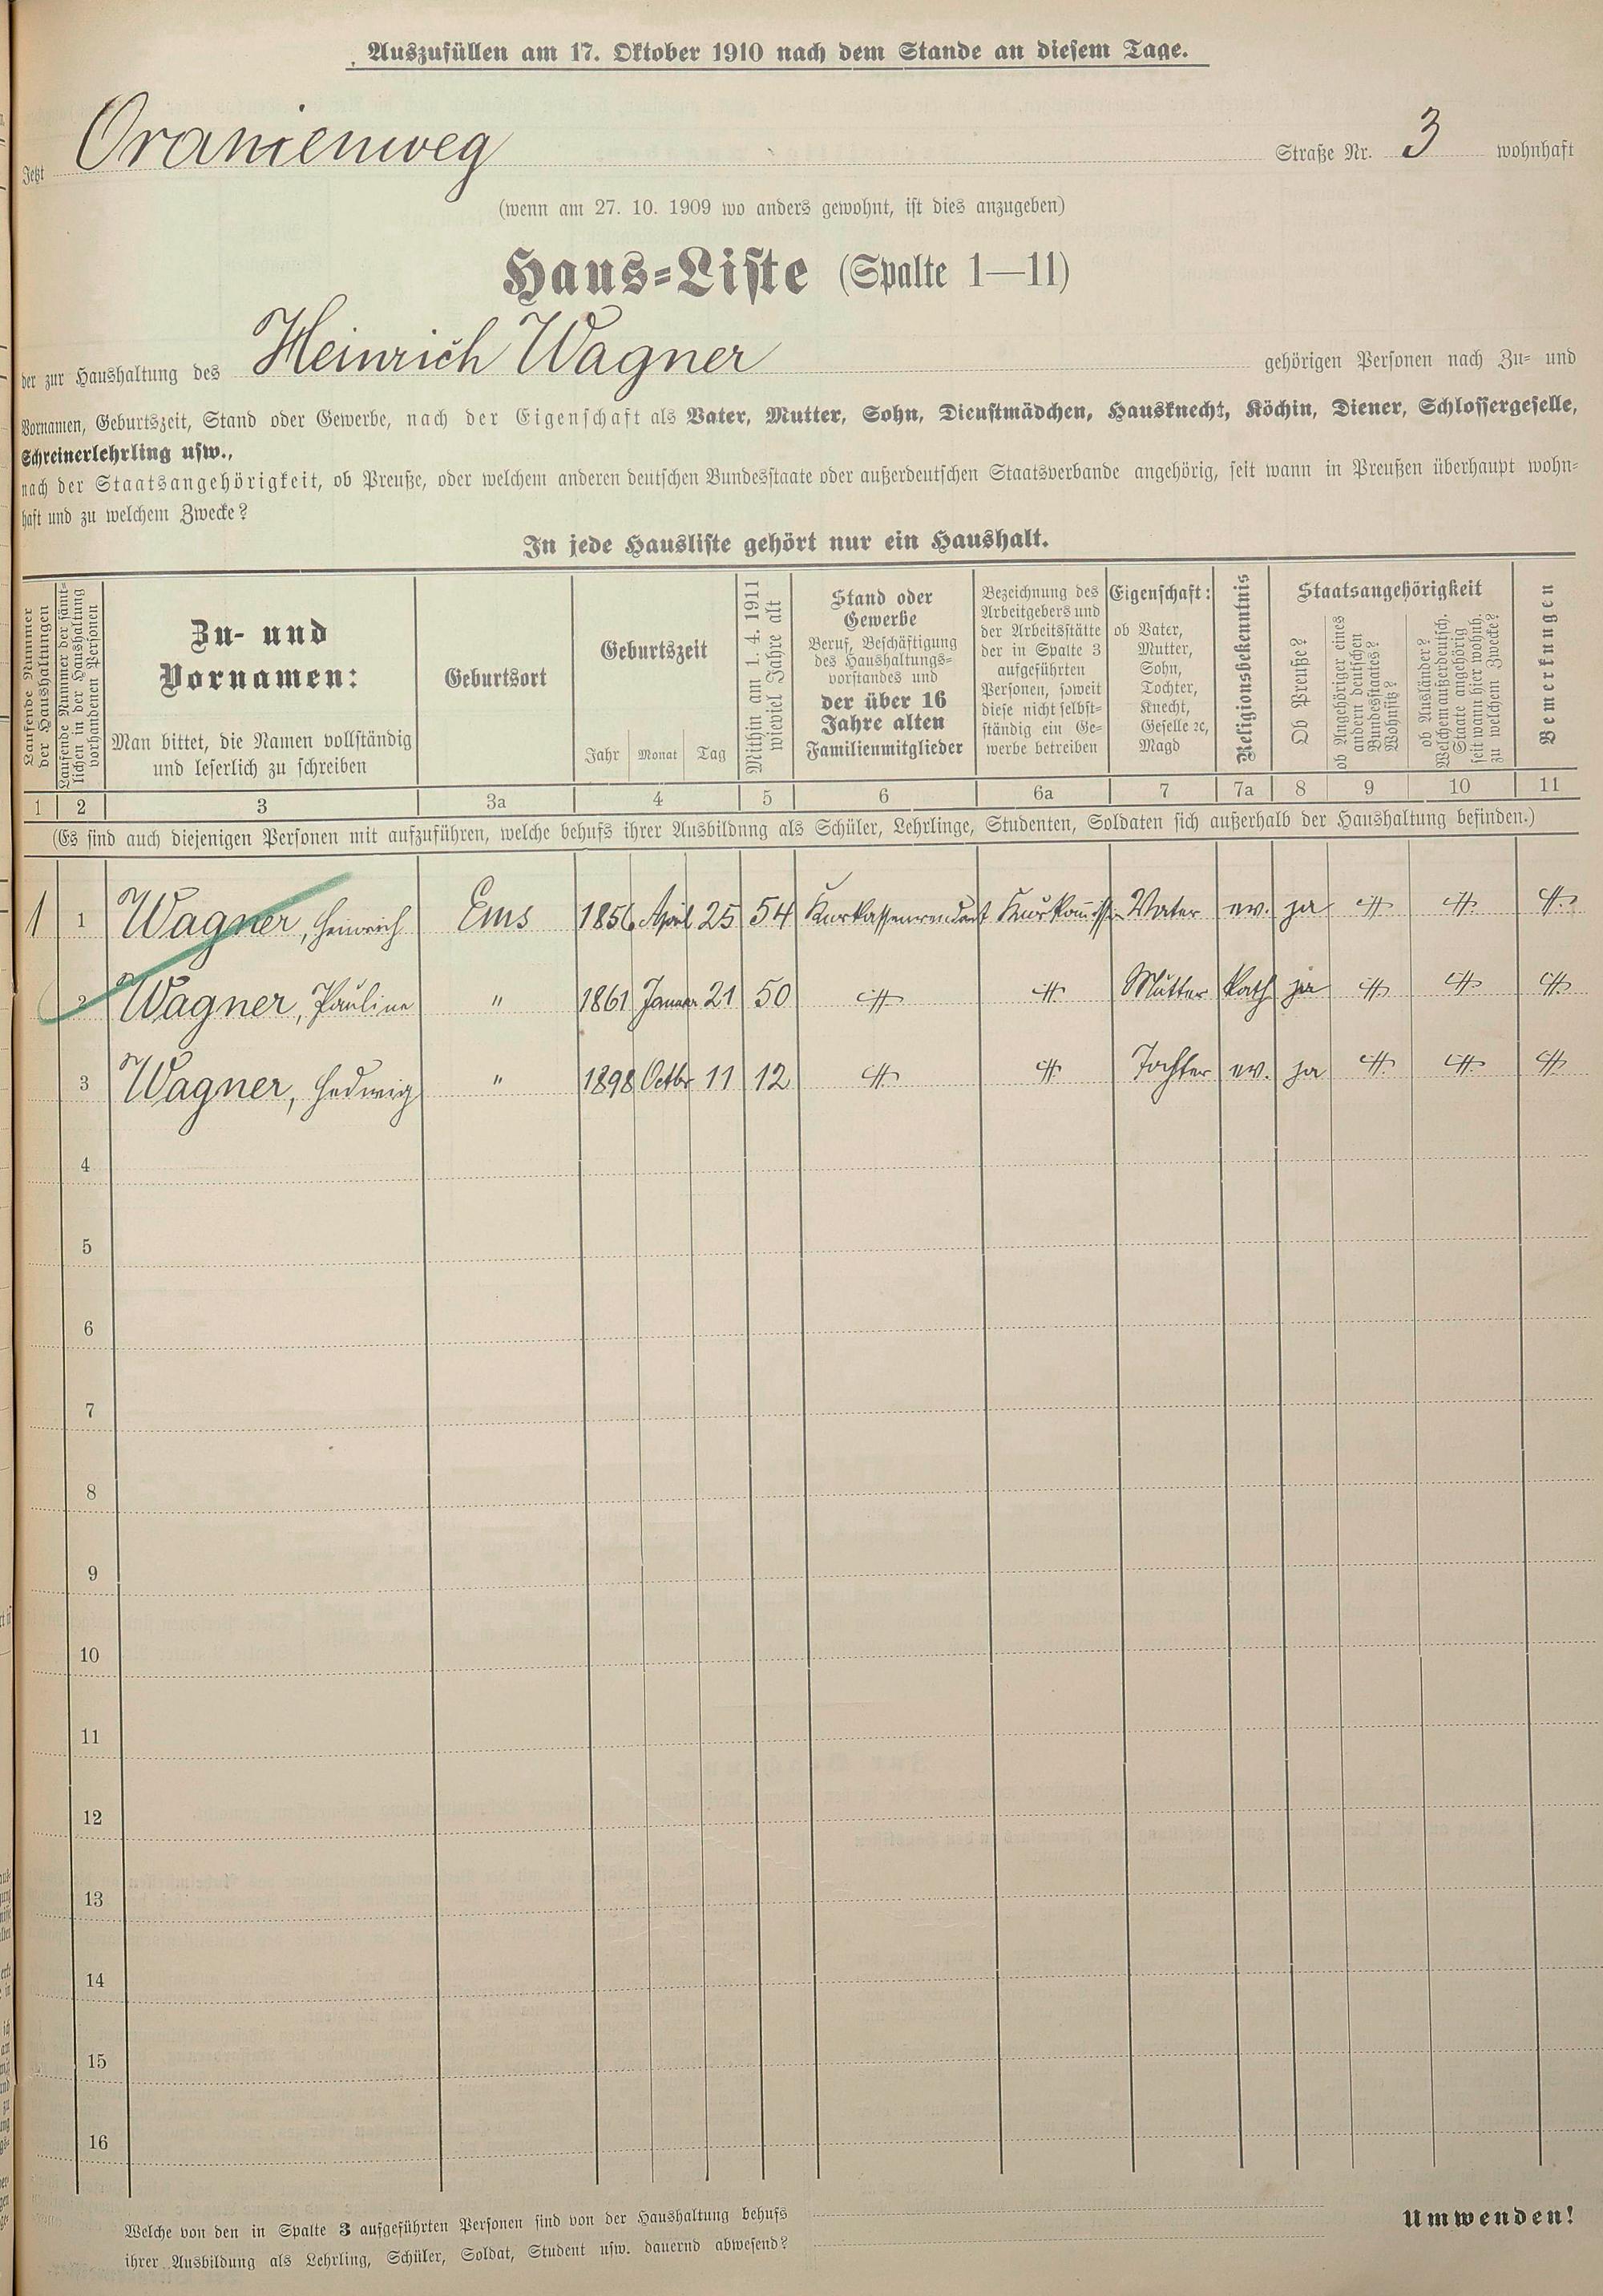 Auszufüllen am 17. Oktober 1910 nach dem Stande an diesem Tage.
Jetzt Oranienweg Straße Nr. 3 wohnhaft
(wenn am 27. 10. 1909 wo anders gewohnt, ist dies anzugeben)
Haus-Liste (Spalte 1—11)
der zur Haushaltung des Heinrich Wagner gehörigen Personen nach Zu- und
Vornamen, Geburtszeit, Stand oder Gewerbe, nach der Eigenschaft als Vater, Mutter, Sohn, Dienstmädchen, Hausknecht, Köchin, Diener, Schlossergeselle,
Schreinerlehrling usw.,
nach der Staatsangehörigkeit, ob Preuße, oder welchem anderen deutschen Bundesstaate oder außerdeutschen Staatsverbande angehörig, seit wann in Preußen überhaupt wohn-
haft und zu welchem Zwecke?
In jede Hausliste gehört nur ein Haushalt.
Laufende Nummer
der Haushaltungen
Laufende Nummer der sämt-
lichen in der Haushaltung
vorhandenen Personen
Zu- und
Vornamen:
Man bittet, die Namen vollständig
und leserlich zu schreiben
Geburtsort
Geburtszeit
Jahr Monat Tag
Mithin am 1. 4. 1911
wieviel Jahre alt
Stand oder
Gewerbe
Beruf, Beschäftigung
des Haushaltungs-
vorstandes und
der über 16
Jahre alten
Familienmitglieder
Bezeichnung des
Arbeitgebers und
der Arbeitsstätte
der in Spalte 3
aufgeführten
Personen, soweit
diese nicht selbst-
ständig ein Ge-
werbe betreiben
Eigenschaft:
ob Vater,
Mutter,
Sohn,
Tochter,
Knecht,
Geselle ꝛc,
Magd
Religionsbekenntnis
Staatsangehörigkeit
Ob Preuße?
ob Angehöriger eines
andern deutschen
Bundesstaates?
Wohnsitz?
ob Ausländer?
Welchem außerdeutsch.
Staate angehörig
seit wann hier wohnh.
zu welchem Zwecke?
Bemerkungen
1 2 3 3a 4 5 6 6a 7 7a 8 9 10 11
(Es sind auch diejenigen Personen mit aufzuführen, welche behufs ihrer Ausbildung als Schüler, Lehrlinge, Studenten, Soldaten sich außerhalb der Haushaltung befinden.)
1 1 Wagner, Heinrich Ems 1856 April 25 54 Kurkassenrendant Vater ev. ja
2 Wagner, Pauline " 1861 Januar 21 50 Mutter Kath ja
3 Wagner, Hedwig " 1898 Octbr 11 12 Tochter ev. ja
4
5
6
7
8
9
10
11
12
13
14
15
16
Welche von den in Spalte 3 aufgeführten Personen sind von der Haushaltung behufs
ihrer Ausbildung als Lehrling, Schüler, Soldat, Student usw. dauernd abwesend?
Umwenden!